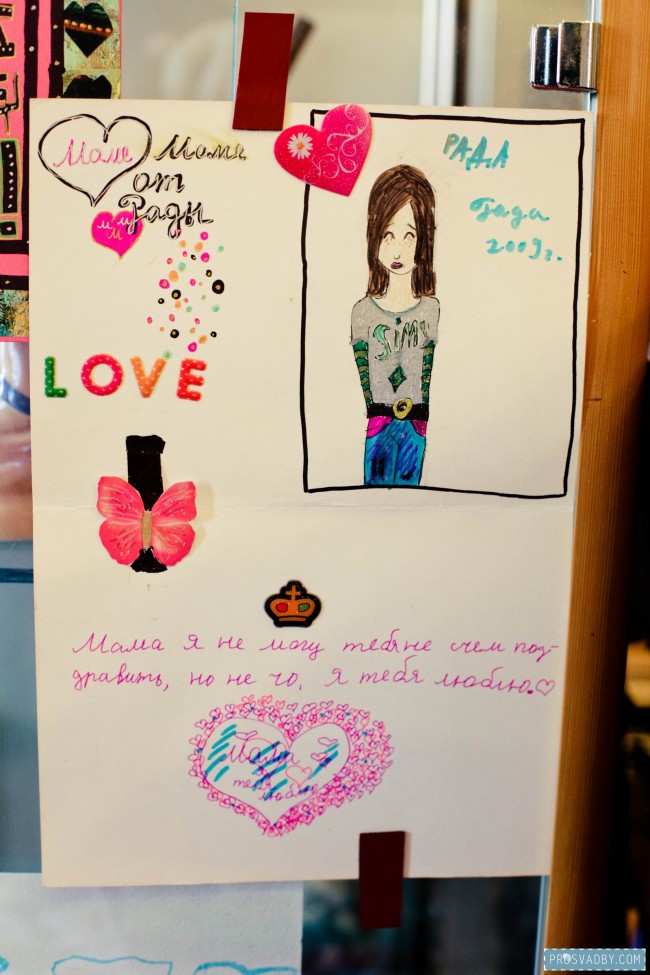 Маме
Маме
от
Рады
М М М
LOVE
РАДА
Рада
2009г.
SIMS
Мама я не могу тебя не счем поз-
дравить, но не чо, я тебя люблю.
Мама
тебя
люблю
PROSVADBY.COM